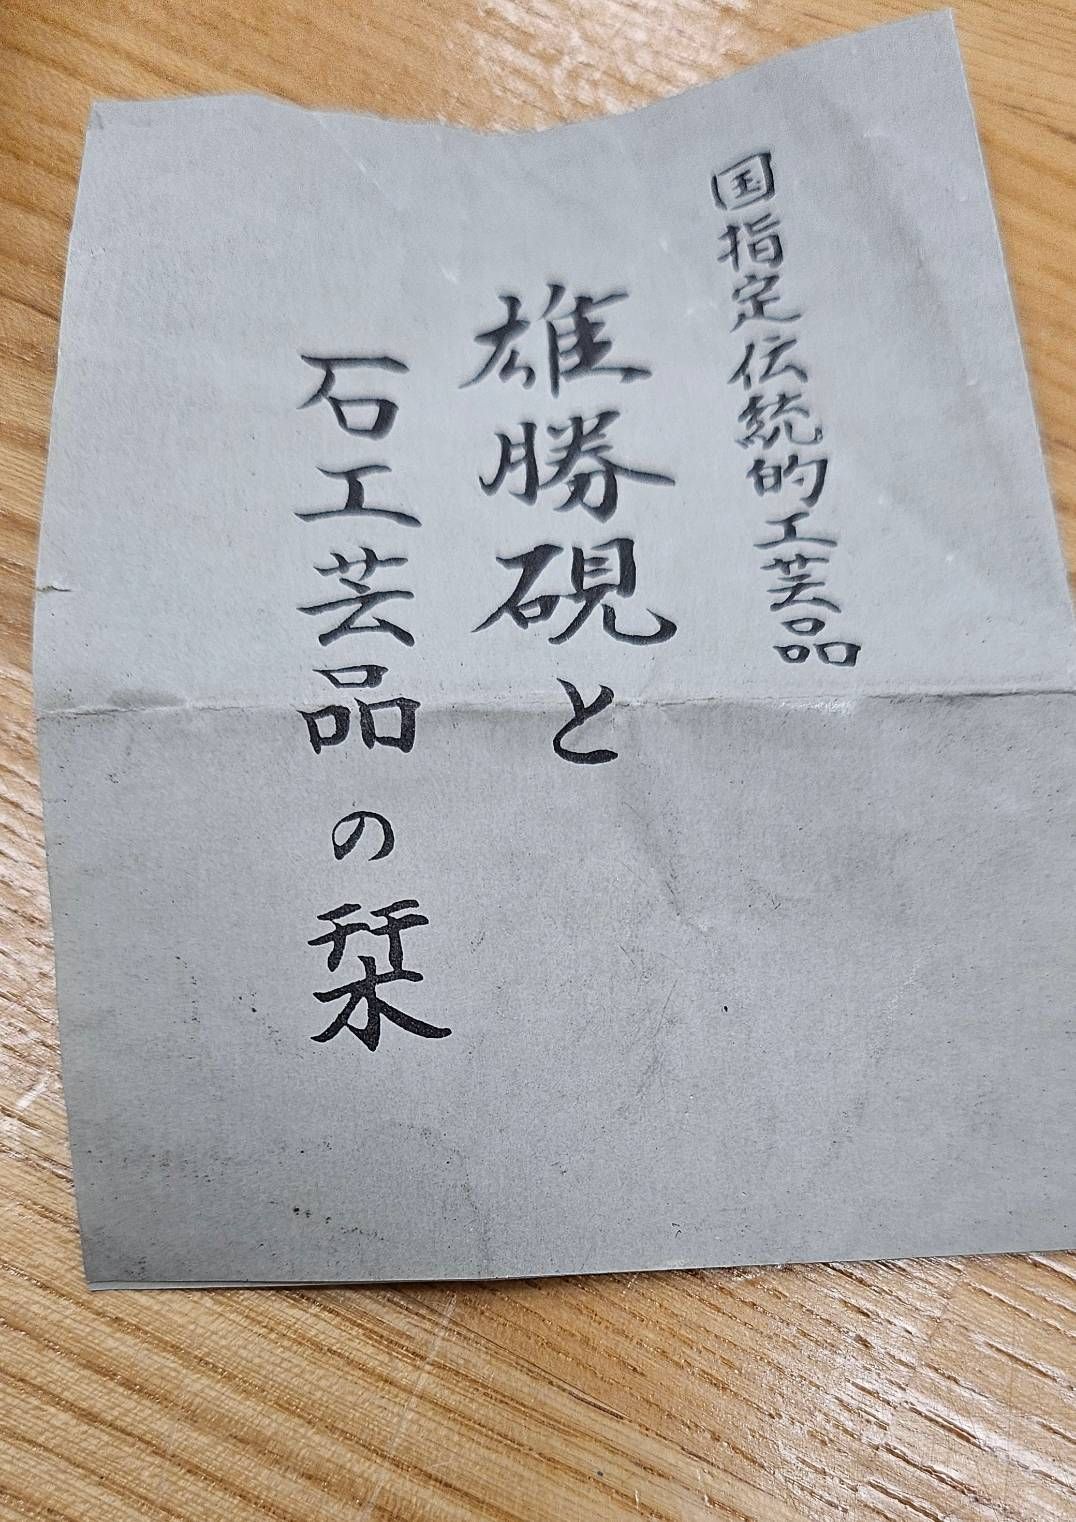 国指定伝統的工芸品
雄勝硯と
石工芸品の栞